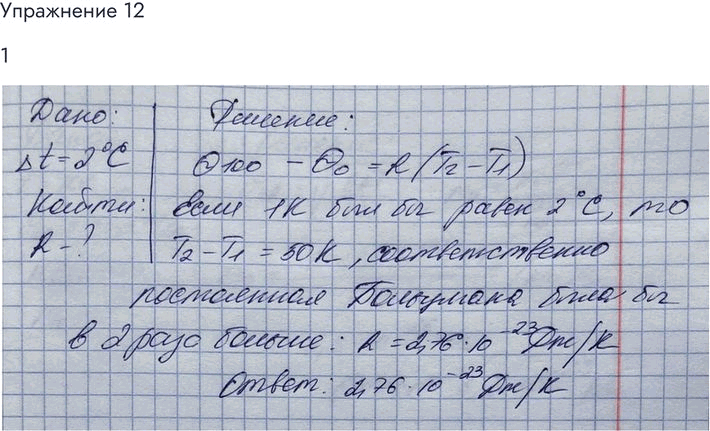 Упражнение 12
1
Дано: Решение:
Δt = 2°C Θ100 − Θ0 = k (T2 − T1)
Найти: Если 1К был бы равен 2°C, то
k − ? T2 − T1 = 50 К, соответственно
постоянная Больцмана была бы
в 2 раза больше: k = 2,76 · 10⁻²³ Дж/К
Ответ: 2,76 · 10⁻²³ Дж/К